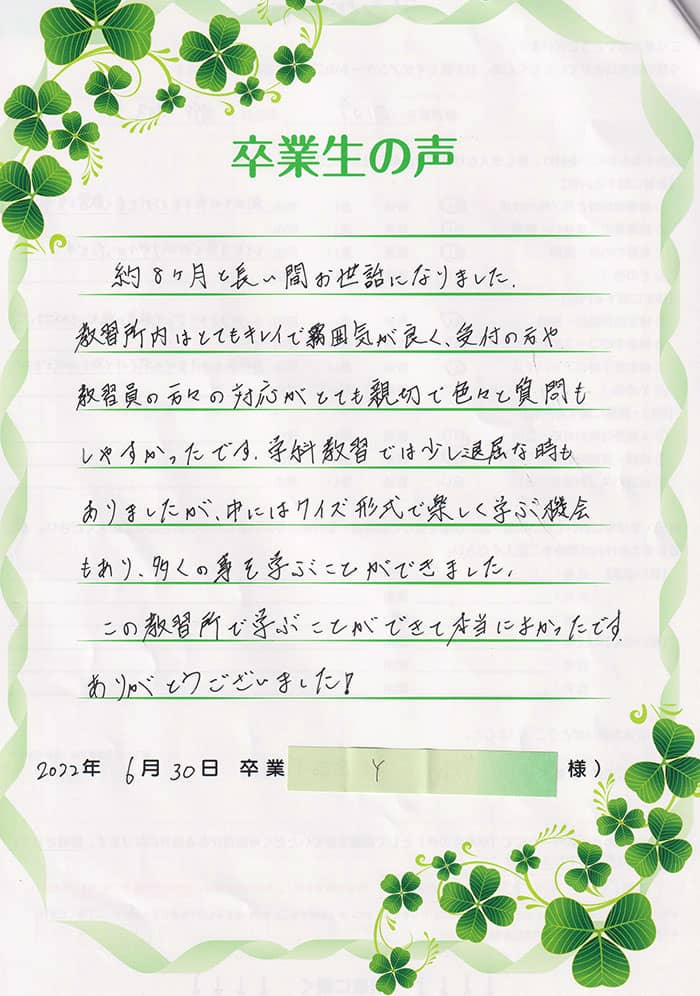 卒業生の声
約8ヶ月と長い間お世話になりました.
教習所内はとてもキレイで雰囲気が良く、受付の方や
教習員の方々の対応がとても親切で色々と質問も
しやすかったです.学科教習では少し退屈な時も
ありましたが、中にはクイズ形式で楽しく学ぶ機会
もあり、多くの事を学ぶことができました.
この教習所で学ぶことができて本当によかったです.
ありがとうございました!
2022年 6月30日 卒業 Y 様)